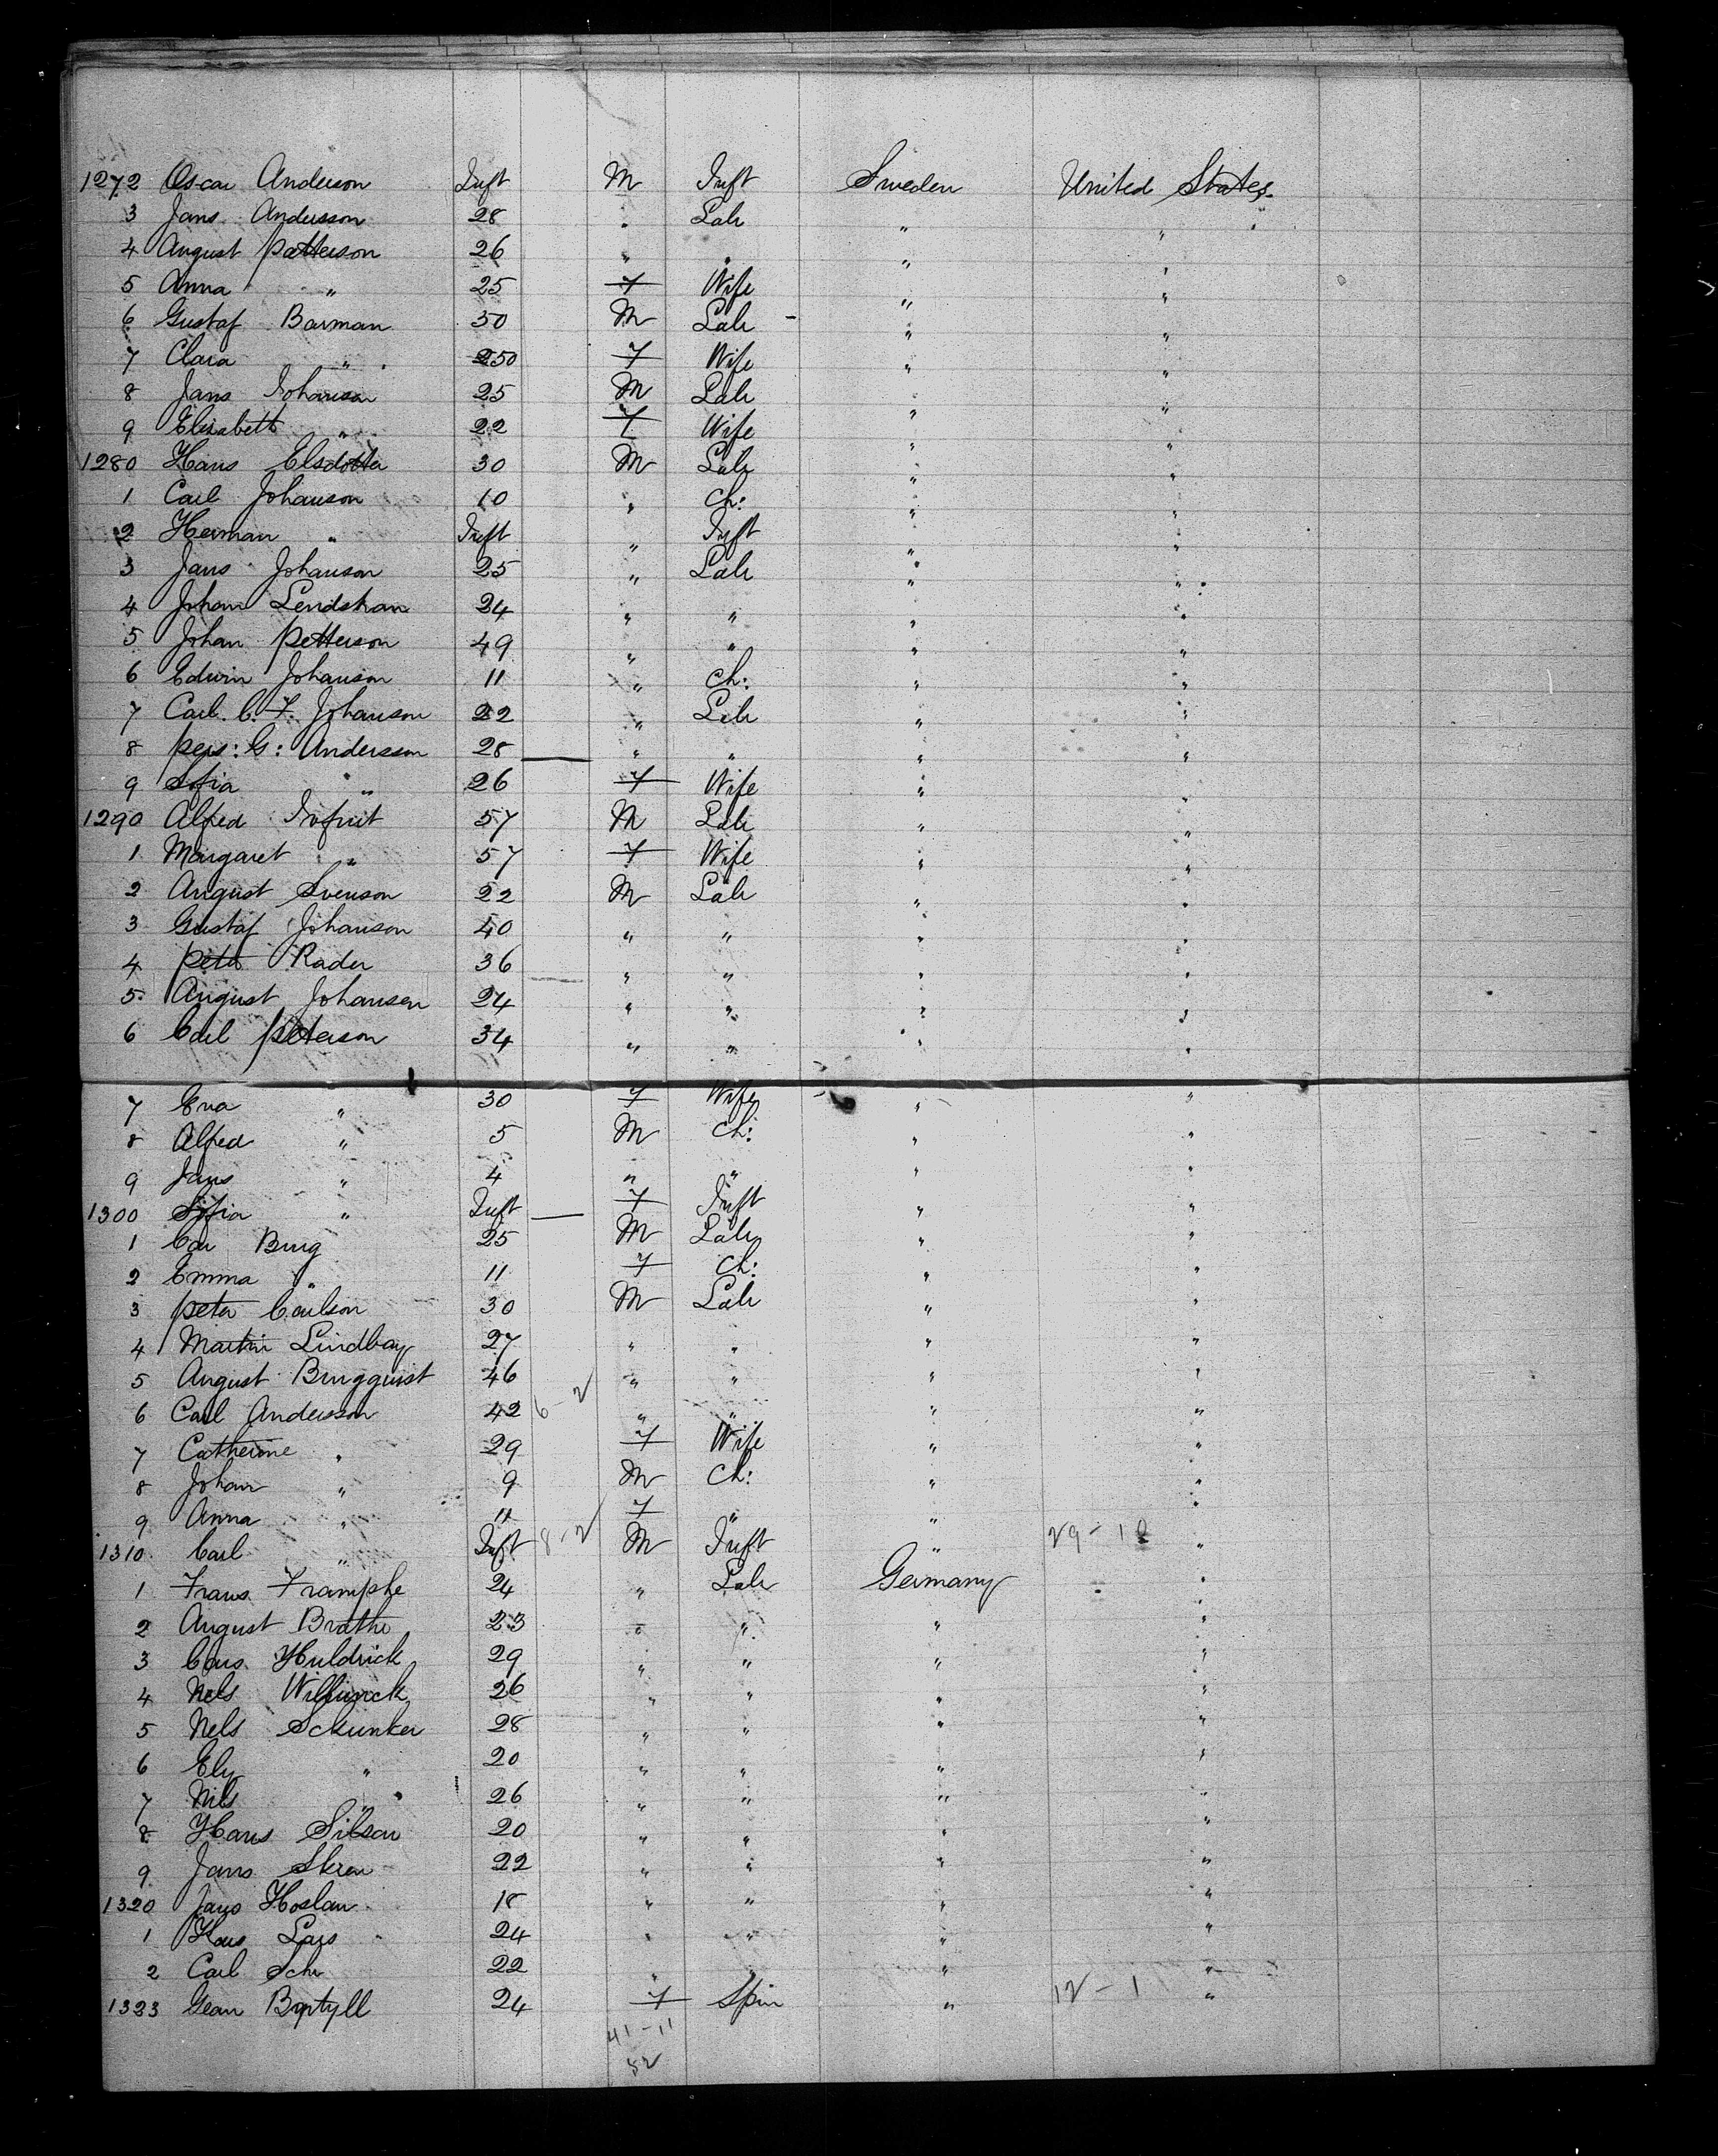 1272 Oscar Anderson Inft M Inft Sweden United States.
3 Jans Andersson 28 " Lab " "
4 August Patterson 26 " " " "
5 Anna " 25 F Wife " "
6 Gustaf Barman 30 M Lab - " "
7 Clara " 250 F Wife " "
8 Jans Johanson 25 M Lab " "
9 Elizabett " 22 F Wife " "
1280 Hans Elsdotter 30 M Lab " "
1 Carl Johanson 10 " Ch: " "
2 Herman " Inft " Inft " "
3 Jans Johanson 25 " Lab " "
4 Johan Lendstran 24 " " " "
5 Johan Petterson 49 " " " "
6 Edwin Johanson 11 " Ch: " "
7 Carl. C. F. Johanson 22 " Lab " "
8 G: Andersson 28 " " " "
9 Sofia " 26 F Wife " "
1290 Alfred 57 M Lab " "
1 Margaret " 57 F Wife " "
2 August Svenson 22 M Lab " "
3 Gustaf Johanson 40 " " " "
4 Peter Rader 36 " " " "
5 August Johansen 24 " " " "
6 Carl Peterson 34 " " " "
7 Eva " 30 F Wife " "
8 Alfred " 5 M Ch: " "
9 Jans " 4 " " " "
1300 Sofia " Inft F Inft " "
1 Car Burg 25 M Lab " "
2 Emma " 11 F Ch: " "
3 Peter Carlson 30 M Lab " "
4 Martin Lindbay 27 " " " "
5 August Burgquist 46 " " " "
6 Carl Andersson 42 6-2 " " " "
7 Catherine " 29 F Wife " "
8 Johan " 9 M Ch: " "
9 Anna " 11 F " " "
1310 Carl " Inft 8-2 M Inft " 29-10 "
1 Frans Framphe 24 " Lab Germany "
2 August Brathe 23 " " " "
3 Cars Huldrick 29 " " " "
4 Nels 26 " " " "
5 Nels Schunker 28 " " " "
6 Ely " 20 " " " "
7 Nils " 26 " " " "
8 Hans Silson 20 " " " "
9 Jans Skren 22 " " " "
1320 Jans Hoslan 18 " " " "
1 Hans Lars 24 " " " "
2 Carl Schr 22 " " " "
1323 Gean 24 F Spin " 12-1 "
41-11
52